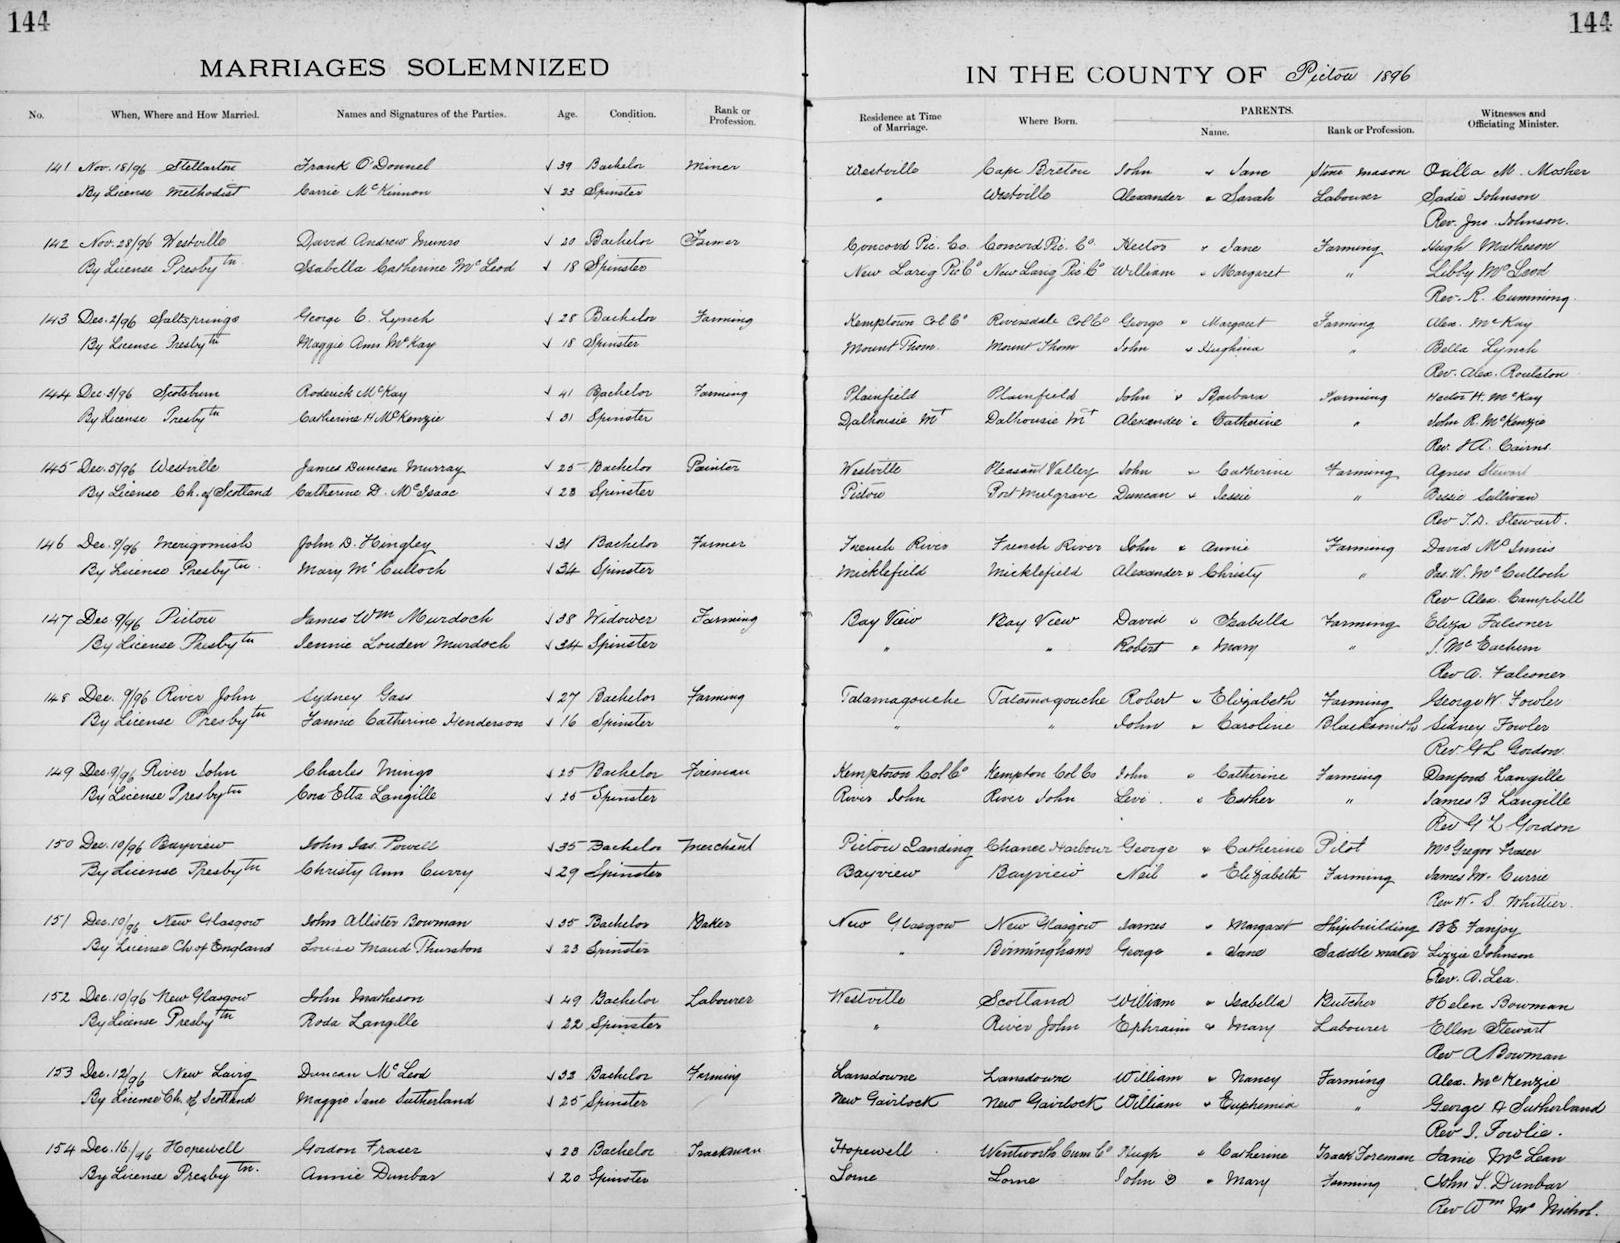 144
144
MARRIAGES SOLEMNIZED
IN THE COUNTY OF Pictou 1896
No. When, Where and How Married. Names and Signatures of the Parties. Age. Condition. Rank or Profession. Residence at Time of Marriage. Where Born. PARENTS. Name. Rank or Profession. Witnesses and Officiating Minister.
141 Nov. 18/96 Stellarton Frank O'Donnel √ 39 Bachelor Miner Westville Cape Breton John & Jane Stone mason M. Mosher
By License Methodist Carrie McKinnon √ 23 Spinster " Westville Alexander & Sarah Labourer Sadie Johnson
Rev. Jno. Johnson.
142 Nov. 28/96 Westville David Andrew Munro √ 20 Bachelor Farmer Concord Pic. Co. Concord Pic. Co. Hector " Jane Farming Hugh Matheson
By License Presbytn Isabella Catherine McLeod √ 18 Spinster New Larig Pic Co New Larig Pic Co William " Margaret " Libby McLeod
Rev. R. Cumming.
143 Dec. 2/96 Saltsprings George C. Lynch √ 28 Bachelor Farming Kemptown Col Co Riversdale Col Co George " Margaret Farming Alex. McKay
By License Presbytn Maggie Ann McKay √ 18 Spinster Mount Thom. Mount Thom John & Hughina " Bella Lynch
Rev. Alex. Roulston
144 Dec. 3/96 Scotsburn Roderick McKay √ 41 Bachelor Farming Plainfield Plainfield John & Barbara Farming Hector H. McKay
By License Presbytn Catherine H McKenzie √ 31 Spinster Dalhousie Mt Dalhousie Mt Alexander & Catherine " John R. McKenzie
Rev. J A. Cairns
145 Dec. 5/96 Westville James Duncan Murray √ 25 Bachelor Painter Westville Pleasant Valley John " Catherine Farming Agnes Stewart
By License Ch. of Scotland Catherine D. McIsaac √ 23 Spinster Pictou Port Mulgrave Duncan & Jessie " Bessie Sullivan
Rev T.D. Stewart.
146 Dec. 9/96 Merigomish John D. Hingley √ 31 Bachelor Farmer French River French River John & Annie Farming David McInnis
By License Presbytn. Mary McCulloch √ 34 Spinster Micklefield Micklefield Alexander & Christy " Jas. W. McCulloch
Rev Alex. Campbell
147 Dec. 9/96 Pictou James Wm Murdoch √ 38 Widower Farming Bay View Bay View David " Isabella Farming Eliza Falconer
By License Presbytn Jennie Louden Murdoch √ 34 Spinster " " Robert " Mary " J. McEachern
Rev A. Falconer
148 Dec. 9/96 River John Sydney Gass √ 27 Bachelor Farming Tatamagouche Tatamagouche Robert " Elizabeth Farming George W. Fowler
By License Presbytn Fannie Catherine Henderson √ 16 Spinster " " John " Caroline Blacksmith Sidney Fowler
Rev. G L Gordon.
149 Dec. 9/96 River John Charles Mingo √ 25 Bachelor Fireman Kemptown Col Co Kempton Col Co John " Catherine Farming Danford Langille
By License Presbytn Cora Etta Langille √ 25 Spinster River John River John Levi " Esther " James B Langille
Rev G L Gordon
150 Dec. 10/96 Bayview John Jas. Powell √ 35 Bachelor Merchant Pictou Landing Chance Harbour George " Catherine Pilot McGregor Fraser
By License Presbytn Christy Ann Curry √ 29 Spinster Bayview Bayview Neil " Elizabeth Farming James M. Currie
Rev W. S. Whittier.
151 Dec. 10/96 New Glasgow John Allister Bowman √ 35 Bachelor Baker New Glasgow New Glasgow James " Margaret Shipbuilding B E Fanjoy
By License Ch of England Louise Maud Thurston √ 23 Spinster " Birmingham George " Jane Saddle mater Lizzie Johnson
Rev. A. Lea.
152 Dec. 10/96 New Glasgow John Matheson √ 49 Bachelor Labourer Westville Scotland William " Isabella Butcher Helen Bowman
By License Presbytn Roda Langille √ 22 Spinster " River John Ephraim & Mary Labourer Ellen Stewart
Rev A Bowman
153 Dec. 12/96 New Lairg Duncan McLeod √ 32 Bachelor Farming Lansdowne Lansdowne William " Nancy Farming Alex. McKenzie
By License Ch. of Scotland Maggie Jane Sutherland √ 25 Spinster New Gairlock New Gairlock William & Euphemia " George A Sutherland
Rev J. Fowlie.
154 Dec. 16/96 Hopewell Gordon Fraser √ 23 Bachelor Trackman Hopewell Wentworth Cum Co Hugh " Catherine Track Foreman Janie McLean
By License Presbytn. Annie Dunbar √ 20 Spinster Lorne Lorne John D " Mary Farming John S. Dunbar
Rev Wm McNichol.